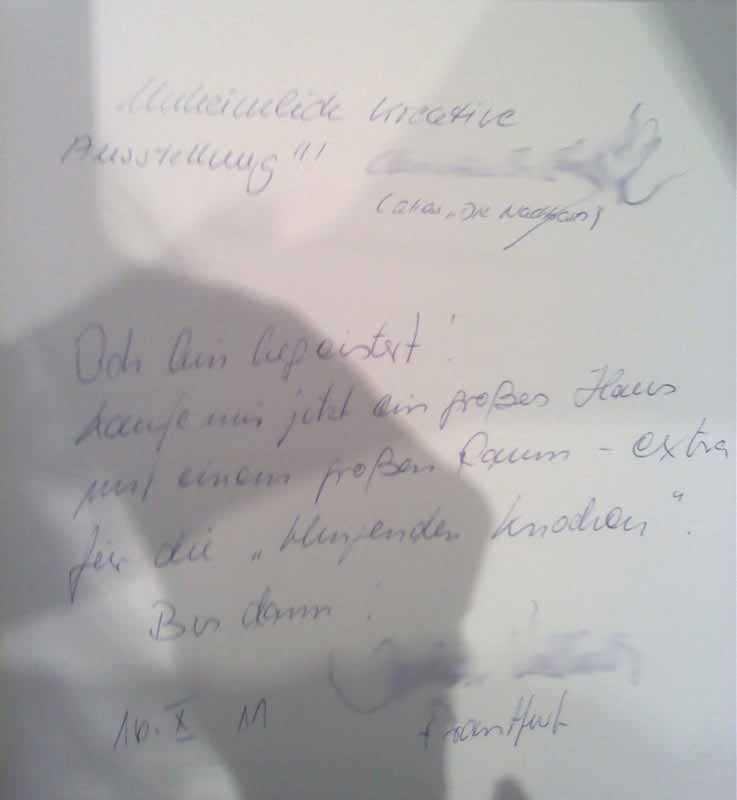 Unheimlich kreative
Ausstellung!!!
(alias „Die
Ich bin begeistert!
kaufe mir jetzt ein großes Haus
mit einem großen Raum - extra
für die „klingenden Knochen".
Bis dann!
16. X 11
Frankfurt